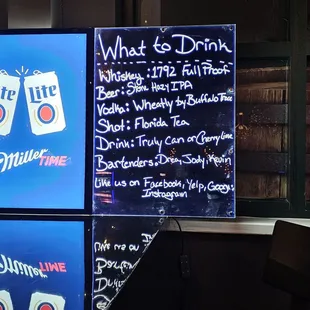 What to Drink
Whiskey: 1792 Full Proof
Beer: Stone Hazy IPA
Vodka: Wheatly by Buffalo Trace
Shot: Florida Tea
Drink: Truly Can or Cherry Lime
Bartenders: Drea, Jody, Kevin
Like us on Facebook, Yelp, Google
Instagram
Lite
Lite
Miller TIME